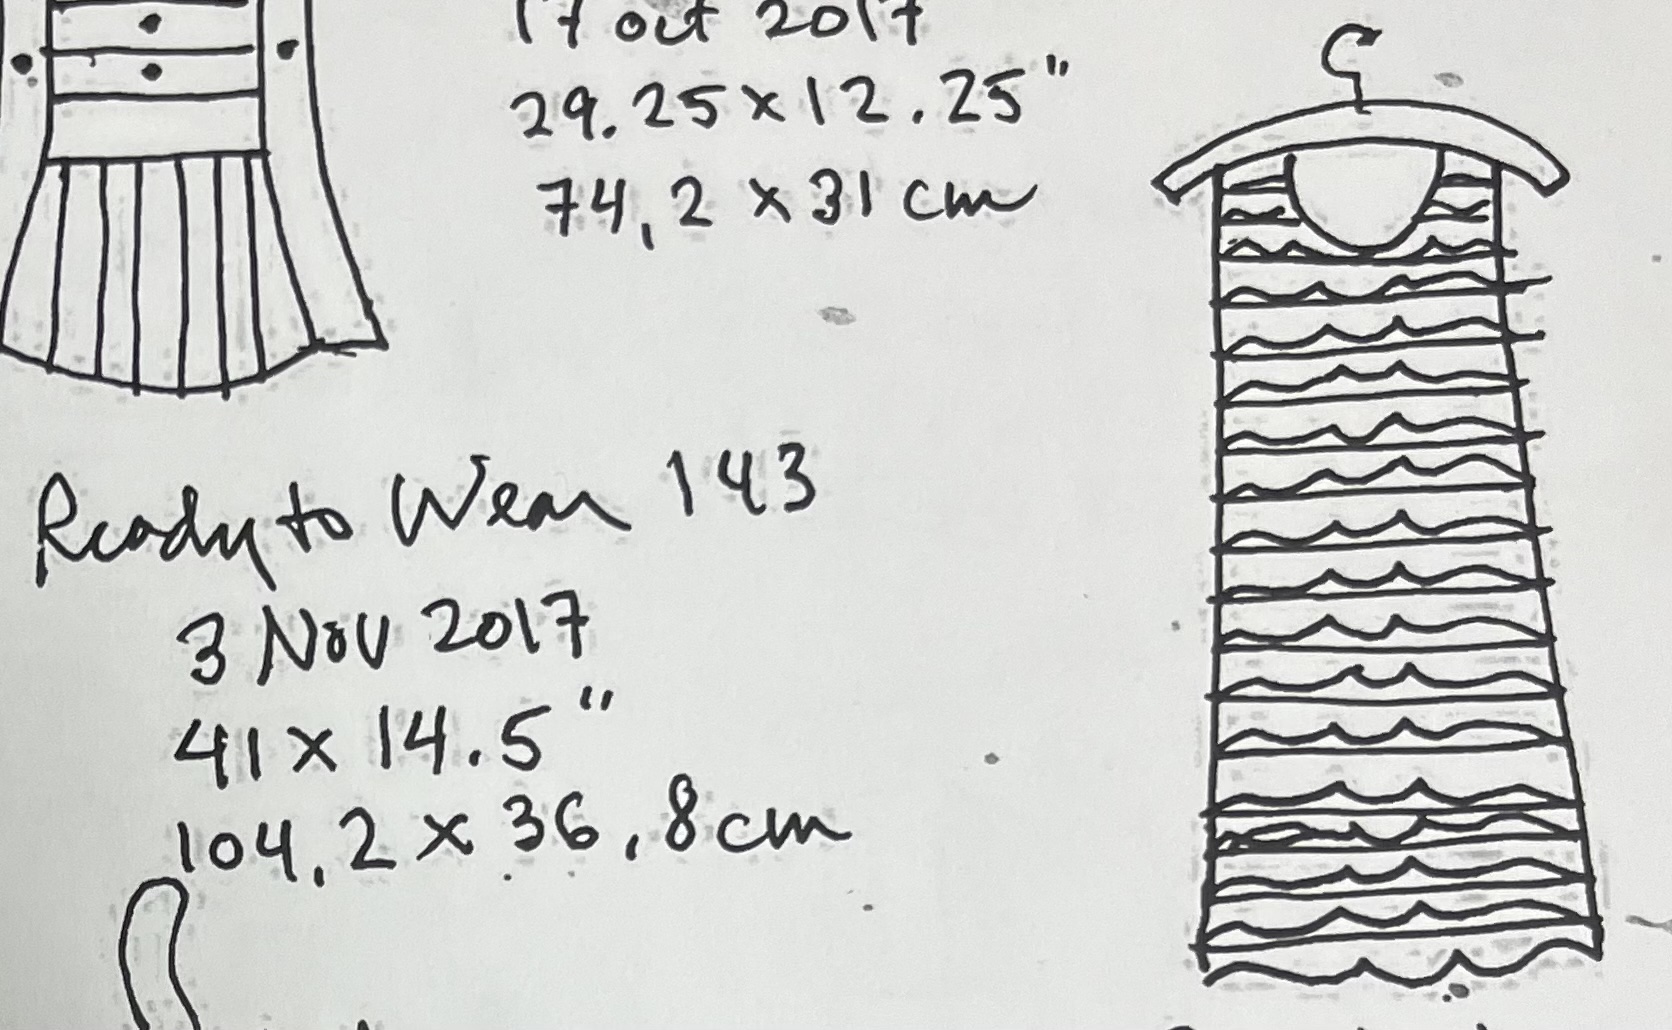 17 oct 2017
29.25 x 12.25"
74,2 x 31 cm
Ready to Wear 143
3 Nov 2017
41 x 14.5"
104,2 x 36,8 cm